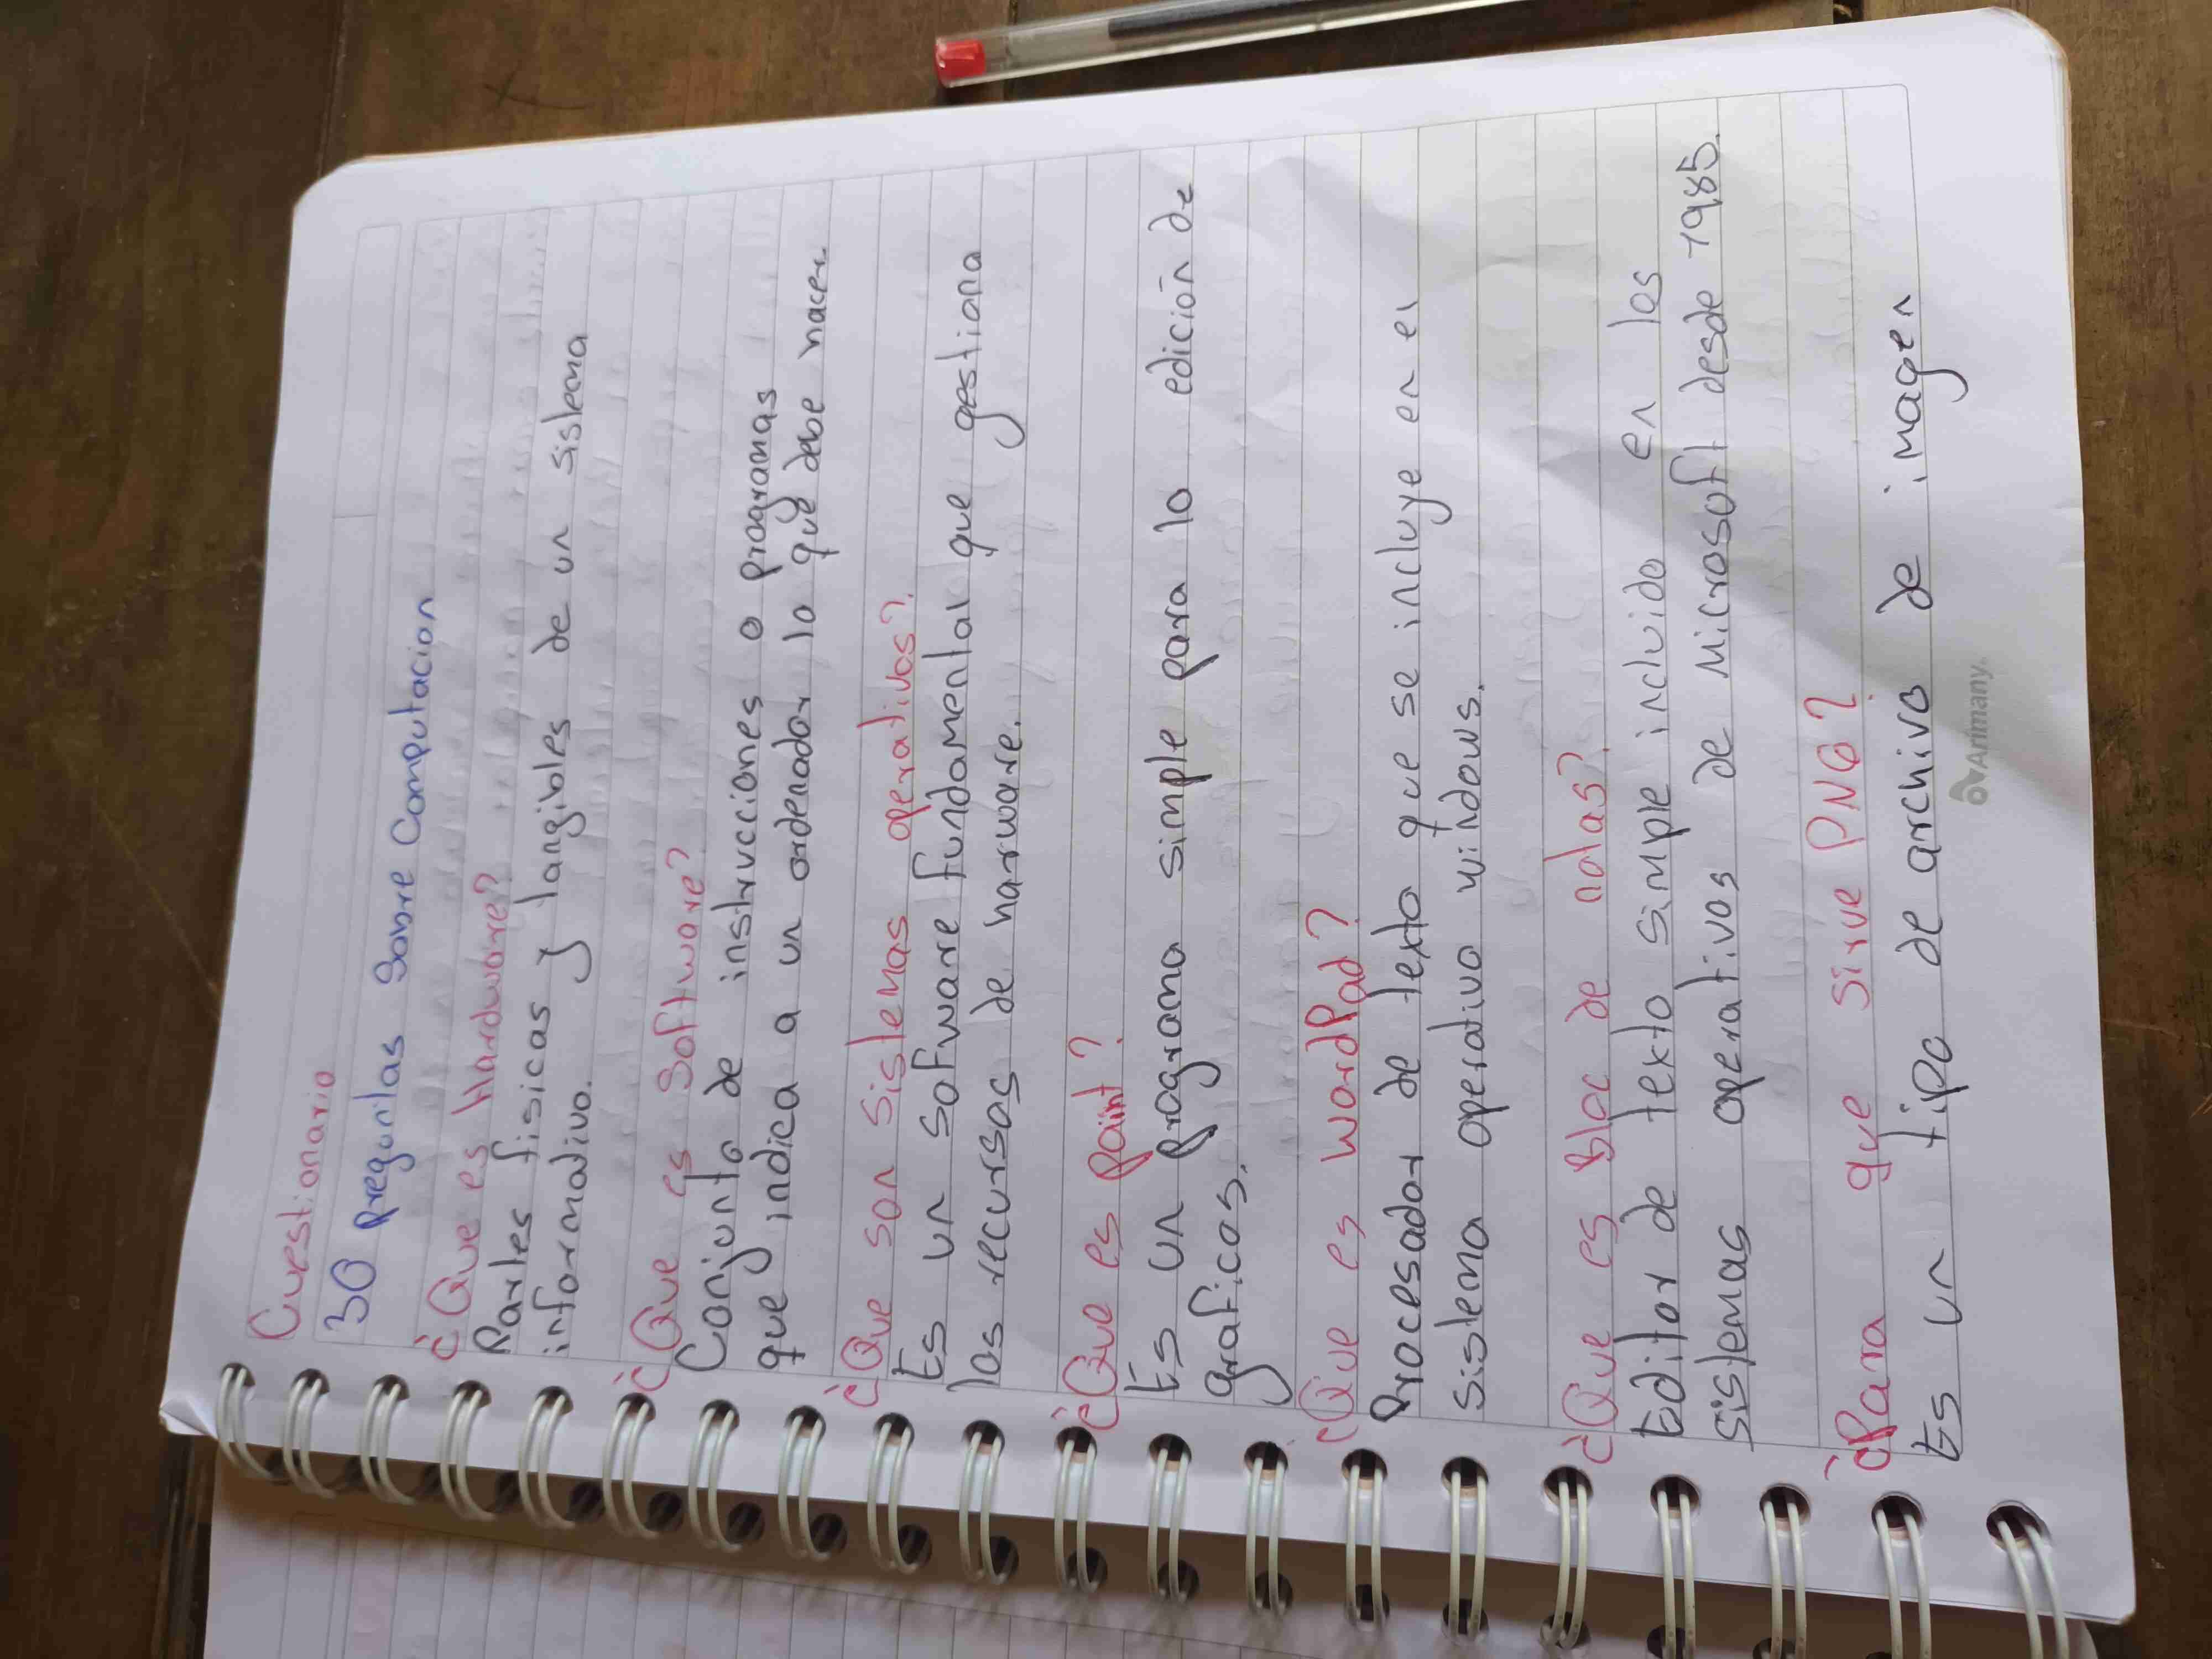 Cuestionario
30 preguntas Sobre Computacion
¿Que es Hardware?
Partes fisicas y tangibles de un sistema
informativo.
¿Que es Software?
Conjunto de instrucciones o programas
que indica a un ordenador lo que debe hacer.
¿Que son Sistemas operativos?
Es un software fundamental que gestiona
los recursos de harware.
¿Que es paint?
Es un programa simple para la edición de
graficos.
¿Que es wordPad?
Procesador de texto que se incluye en el
sistema operativo windows.
¿Que es Bloc de notas?
Editor de texto simple incluido en los
sistemas operativos de Microsoft desde 1985.
¿Para que sirve PNG?
Es un tipo de archivo de imagen
Arimany